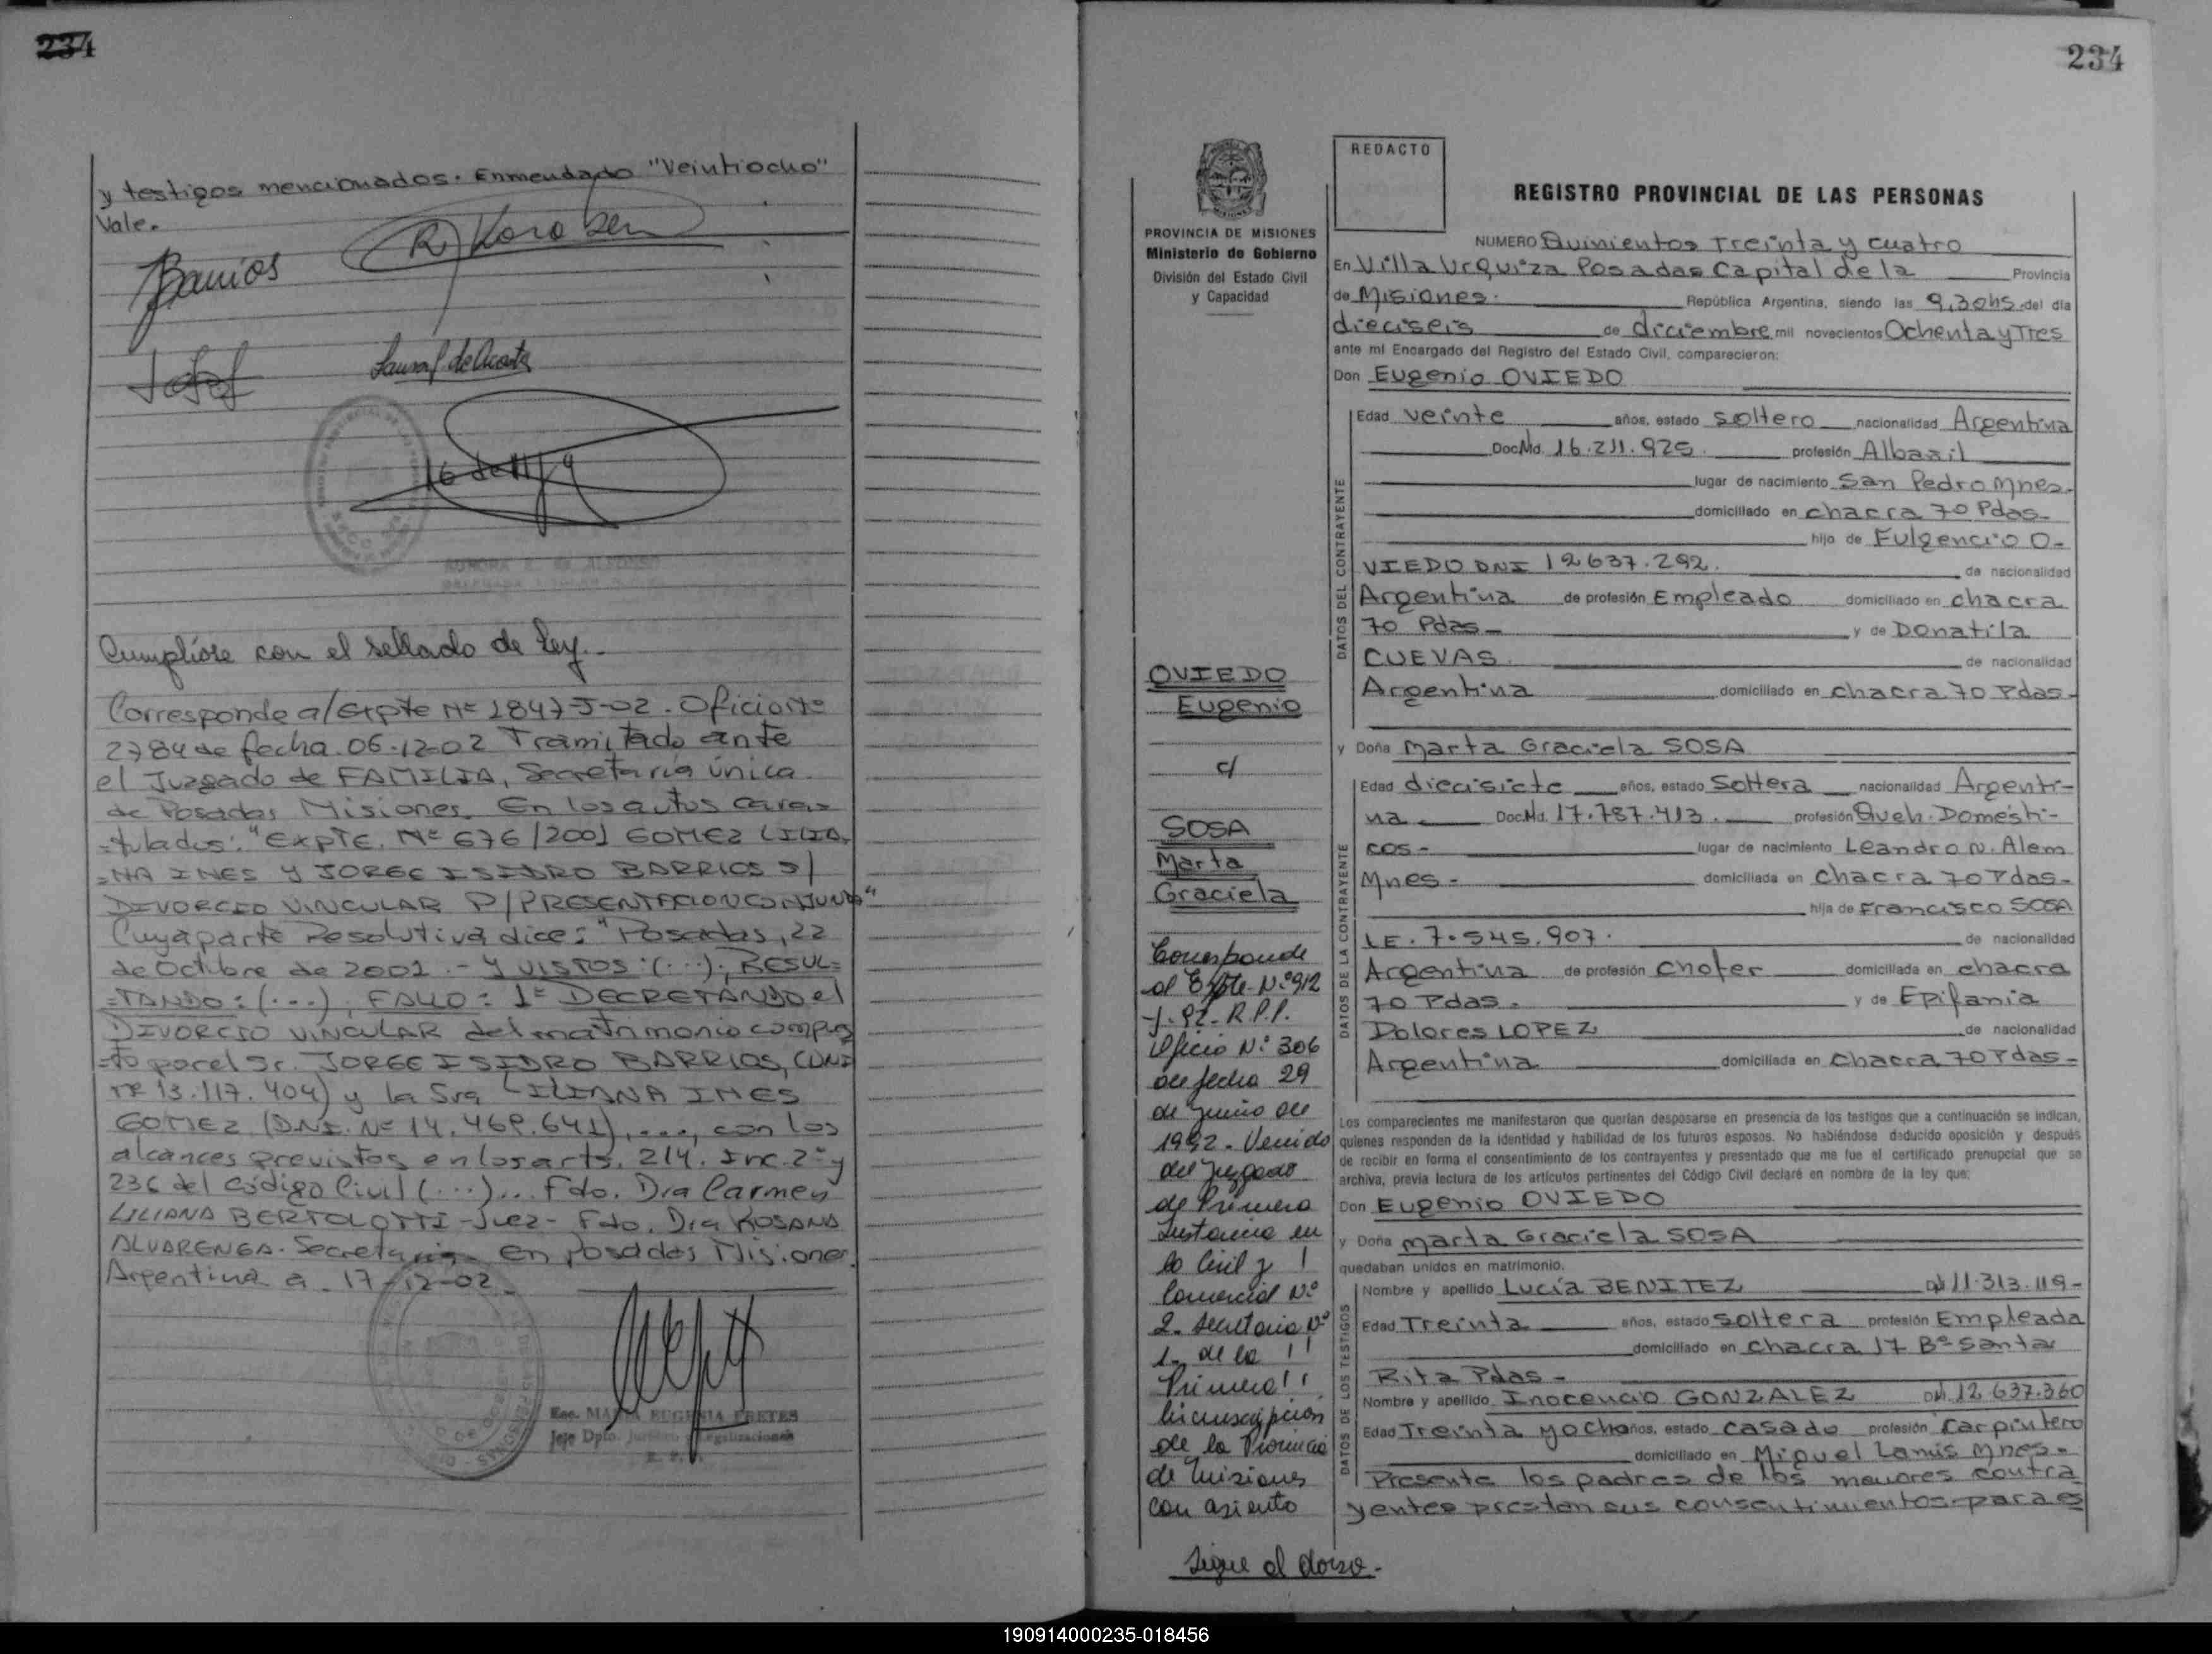 234
y testigos mencionados. Enmendado "Veintiocho"
Vale.
Barrios
Laura de Acosta
Cumplióse con el sellado de Ley.-
Corresponde a/Expte Nº 2847-J-02. Oficio Nº
2784 de fecha 06-12-02 Tramitado ante
el Juzgado de FAMILIA, Secretaría única
de Posadas Misiones. En los autos cara-
-tulados: "EXPTE. Nº 676/2001 GOMEZ LILIA-
-NA INES Y JORGE ISIDRO BARRIOS S/
DIVORCIO VINCULAR P/PRESENTACION CONJUNTA"
Cuya parte Resolutiva dice: "Posadas, 22
de Octubre de 2001.- Y VISTOS: (...); RESUL=
=TANDO: (...), FALLO: 1º DECRETANDO el
DIVORCIO VINCULAR del matrimonio compues
=to por el Sr. JORGE ISIDRO BARRIOS, (DNI
Nº 13.117.404) y la Sra LILIANA INES
GOMEZ (DNI. Nº 14.469.641), ..., con los
alcances previstos en los arts. 214. Inc. 2º y
236 del Código Civil (...)... Fdo. Dra Carmen
LILIANA BERTOLOTTI -Juez- Fdo. Dra ROSANA
ALVARENGA. Secretaria- En Posadas Misiones.
Argentina a 17-12-02
Esc. MARIA EUGENIA FRETES
Jefe Dpto. Jurídico y Legalizaciones
234
REDACTO
PROVINCIA DE MISIONES
Ministerio de Gobierno
División del Estado Civil
y Capacidad
REGISTRO PROVINCIAL DE LAS PERSONAS
NUMERO Quinientos Treinta y cuatro
En Villa Urquiza Posadas Capital de la Provincia
de Misiones. República Argentina, siendo las 9,30hs. del día
dieciseis de diciembre mil novecientos Ochenta y Tres
ante mí Encargado del Registro del Estado Civil, comparecieron:
Don Eugenio OVIEDO
DATOS DEL CONTRAYENTE
Edad veinte años, estado soltero nacionalidad Argentina
Doc.Nd. 16.211.925. profesión Albañil
lugar de nacimiento San Pedro Mnes.
domiciliado en chacra 70 Pdas-
hijo de Fulgencio O-
VIEDO DNI 12637.292. de nacionalidad
Argentina de profesión Empleado domiciliado en chacra
70 Pdas- y de Donatila
CUEVAS. de nacionalidad
Argentina domiciliado en chacra 70 Pdas-
y Doña Marta Graciela SOSA
DATOS DE LA CONTRAYENTE
Edad diecisiete años, estado Soltera nacionalidad Argenti-
na Doc.Nd. 17.787.413. profesión Queh. Domésti-
cos- lugar de nacimiento Leandro N. Alem
Mnes- domiciliada en Chacra 70 Pdas-
hija de Francisco SOSA
LE. 7.545.907. de nacionalidad
Argentina de profesión Chofer domiciliada en chacra
70 Pdas. y de Epifania
Dolores LOPEZ de nacionalidad
Argentina domiciliada en Chacra 70 Pdas-
Los comparecientes me manifestaron que querían desposarse en presencia de los testigos que a continuación se indican,
quienes responden de la identidad y habilidad de los futuros esposos. No habiéndose deducido oposición y después
de recibir en forma el consentimiento de los contrayentes y presentado que me fue el certificado prenupcial que se
archiva, previa lectura de los artículos pertinentes del Código Civil declaré en nombre de la ley que:
Don Eugenio OVIEDO
y Doña Marta Graciela SOSA
quedaban unidos en matrimonio.
DATOS DE LOS TESTIGOS
Nombre y apellido Lucía BENITEZ 11.313.119-
Edad Treinta años, estado soltera profesión Empleada
domiciliado en chacra 17 Bº Santa
Rita Pdas-
Nombre y apellido Inocencio GONZALEZ 12.637.360
Edad Treinta y ocho años, estado casado profesión Carpintero
domiciliado en Miguel Lanús Mnes-
Presente los padres de los menores contra
yentes prestan sus consentimientos para es
OVIEDO
Eugenio
c/
SOSA
Marta
Graciela
Corresponde
al Expte-Nº912
-J-92-R.P.P.
Oficio Nº 306
de fecha 29
de Junio de
1992- Venido
del Juzgado
de Primera
Instancia en
lo Civil y
Comercial Nº
2- Secretaria Nº
1- de la
Primera
Circunscripción
de la Provincia
de Misiones
con asiento
Sigue al dorso.-
190914000235-018456